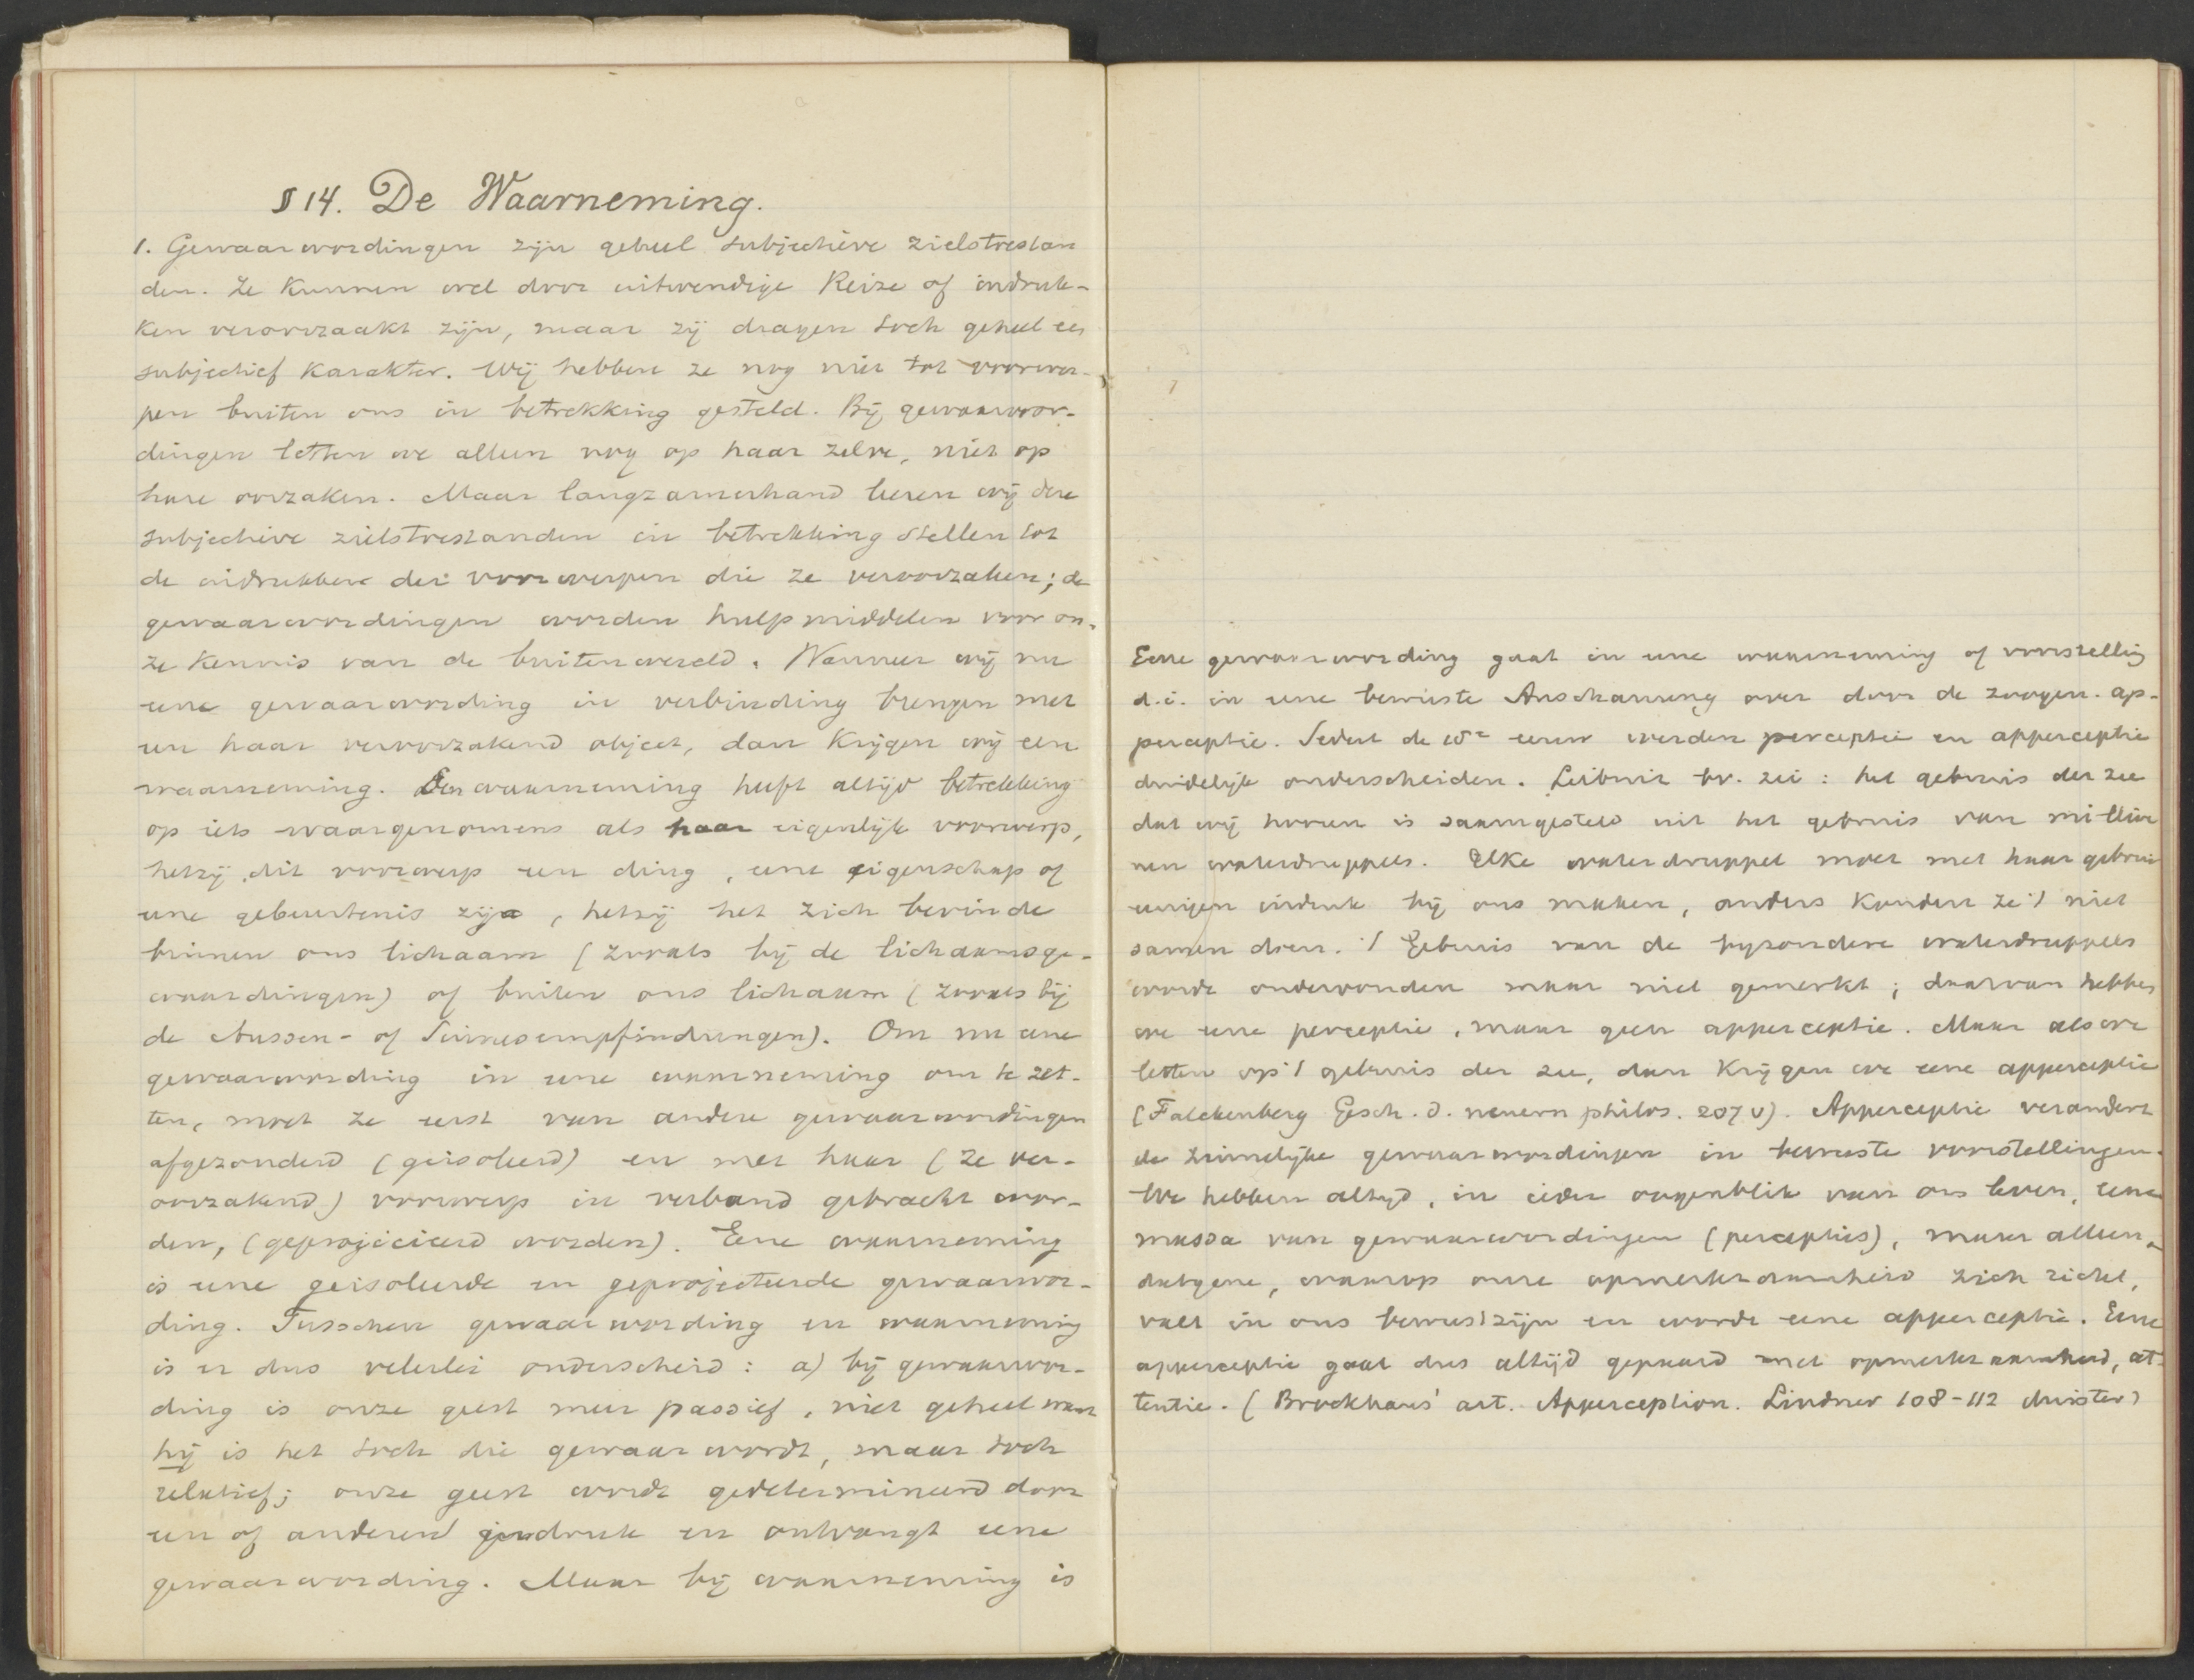 § 14. De Waarneming.
1. Gewaarwordingen zijn geheel subjectieve zielstoestan
den. Ze kunnen wel door uitwendige Reize of indruk-
ken veroorzaakt zijn, maar zij dragen toch geheel een
subjectief karakter. Wij hebben ze nog niet tot voorwer-
pen buiten ons in betrekking gesteld. Bij gewaarwor-
dingen letten we alleen nog op haar zelve, niet op
hare oorzaken. Maar langzamerhand leeren wij deze
subjectieve zielstoestanden in betrekking stellen tot
de indrukken der voorwerpen die ze veroorzaken; de
gewaarwordingen worden hulpmiddelen voor on-
ze kennis van de buitenwereld. Wanneer wij nu
eene gewaarwording in verbinding brengen met
een haar veroorzakend object, dan krijgen wij een
waarneming. Een waarneming heeft altijd betrekking
op iets waargenomens als haar eigenlijk voorwerp,
hetzij dit voorwerp een ding, eene eigenschap of
eene gebeurtenis zij, hetzij het zich bevinde
binnen ons lichaam (zooals bij de lichaamsge-
waardingen) of buiten ons lichaam (zooals bij
de Aussen- of Sinnesempfindungen). Om nu eene
gewaarwording in eene waarneming om te zet-
ten, moet ze eerst van andere gewaarwordingen
afgezonderd (geisoleerd) en met haar (ze ver-
oorzakend) voorwerp in verband gebracht wor-
den, (geprojiciëerd worden). Eene waarneming
is eene geisoleerde en geprojecteerde gewaarwor-
ding. Tusschen gewaarwording en waarneming
is er dus velerlei onderscheid: a) bij gewaarwor-
ding is onze geest meer passief, niet geheel want
hij is het toch die gewaar wordt, maar toch
relatief; onze geest wordt gedetermineerd door
een of anderen indruk en ontvangt eene
gewaarwording. Maar bij waarneming is
Eene gewaarwording gaat in eene waarneming of voorstelling
d.i. in eene bewuste Anschauung over door de zoogen. ap-
perceptie. Sedert de 18e eeuw werden perceptie en apperceptie
duidelijk onderscheiden. Leibniz bv. zei: het gebruis der zee
dat wij hooren is saamgesteld uit het gebruis van millioe
nen waterdruppels. Elke waterdruppel moet met haar gebruis
eenigen indruk bij ons maken, anders konden ze 't niet
samen doen. 't Gebruis van de byzondere waterdruppels
wordt ondervonden maar niet gemerkt; daarvan hebben
we eene perceptie, maar geen apperceptie. Maar als we
letten op 't gebruis der zee, dan krijgen we eene apperceptie
(Falckenberg Gesch. d. neuern philos. 207 v). Apperceptie verandert
de zinnelijke gewaarwordingen in bewuste voorstellingen.
We hebben altijd, in ieder oogenblik van ons leven, eene
massa van gewaarwordingen (percepties), maar alleen
datgene, waarop onze opmerkzaamheid zich richt,
valt in ons bewustzijn en wordt eene apperceptie. Eene
apperceptie gaat dus altijd gepaard met opmerkzaamheid, at-
tentie. (Brockhaus' art. Apperception. Lindner 108-112